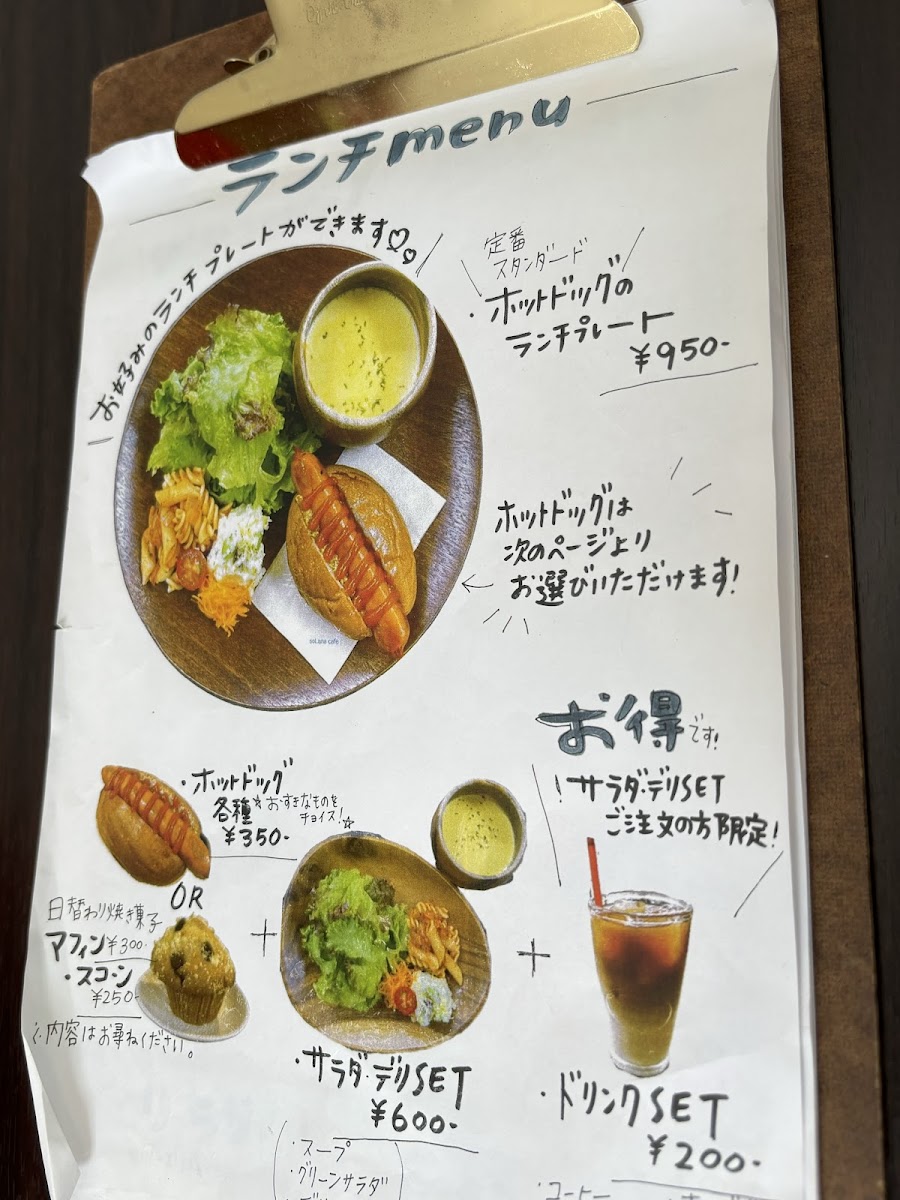 ランチmenu
お好みのランチプレートができます
定番
スタンダード
・ホットドッグの
ランチプレート
¥950-
ホットドッグは
次のページより
お選びいただけます!
soLana cafe
お得です!
サラダ・デリSET
ご注文の方限定!
・ホットドッグ
各種
おすきなものを
チョイス!
¥350-
OR
日替わり焼き菓子
マフィン ¥300-
・スコーン
¥250-
内容はお尋ねください。
+
+
・サラダ・デリSET
¥600-
・スープ
・グリーンサラダ
・ドリンクSET
¥200-